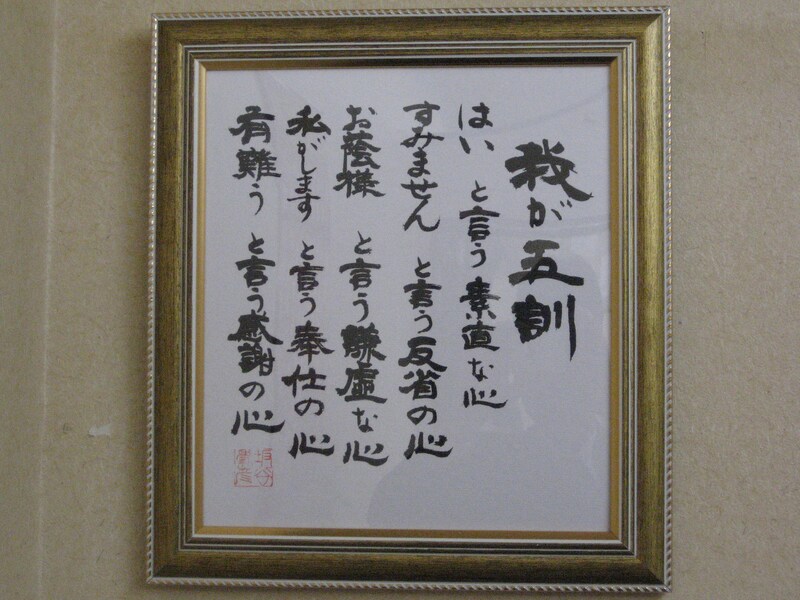 我が五訓
はい と言う素直な心
すみません と言う反省の心
お蔭様 と言う謙虚な心
私がします と言う奉仕の心
有難う と言う感謝の心